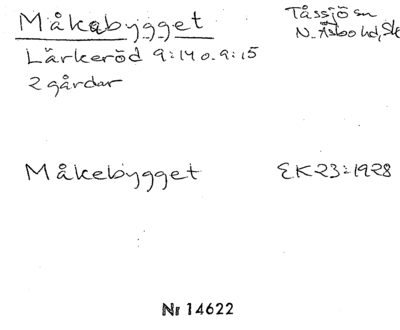 Måkabygget
Tåssjö sn
Lärkeröd 9:14 o. 9:15
N. Åsbo hd, Sk
2 gårdar
Måkebygget
EK 23:1928
Nr 14622